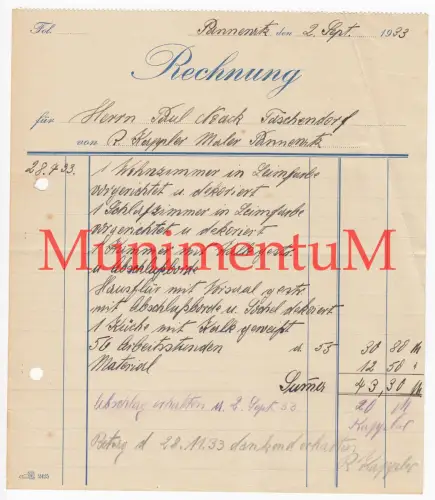 Fol. Pannewitz den 2. Sept. 1933
Rechnung
für Herrn Paul Noack Taschendorf
von P. Kappler Maler Pannewitz
28.4.33. 1 Wohnzimmer in Leimfarbe
vorgerichtet u. dekoriert
1 Schlafzimmer in Leimfarbe
vorgerichtet u. dekoriert
1 mit Kalk gestr.
u. Abschlußborde
MunimentuM
Hausflur mit gestr.
mit Abschlußborde u. Sockel dekoriert
1 Küche mit Kalk geweißt
56 Arbeitsstunden a. 55 30 80 M
Material 12 50 "
Sume: 43,30 M
Abschlag erhalten a. 2. Sept. 33 20 M
Kappler
Betrag d 28.11.33 dankend erhalten
P. Kappler